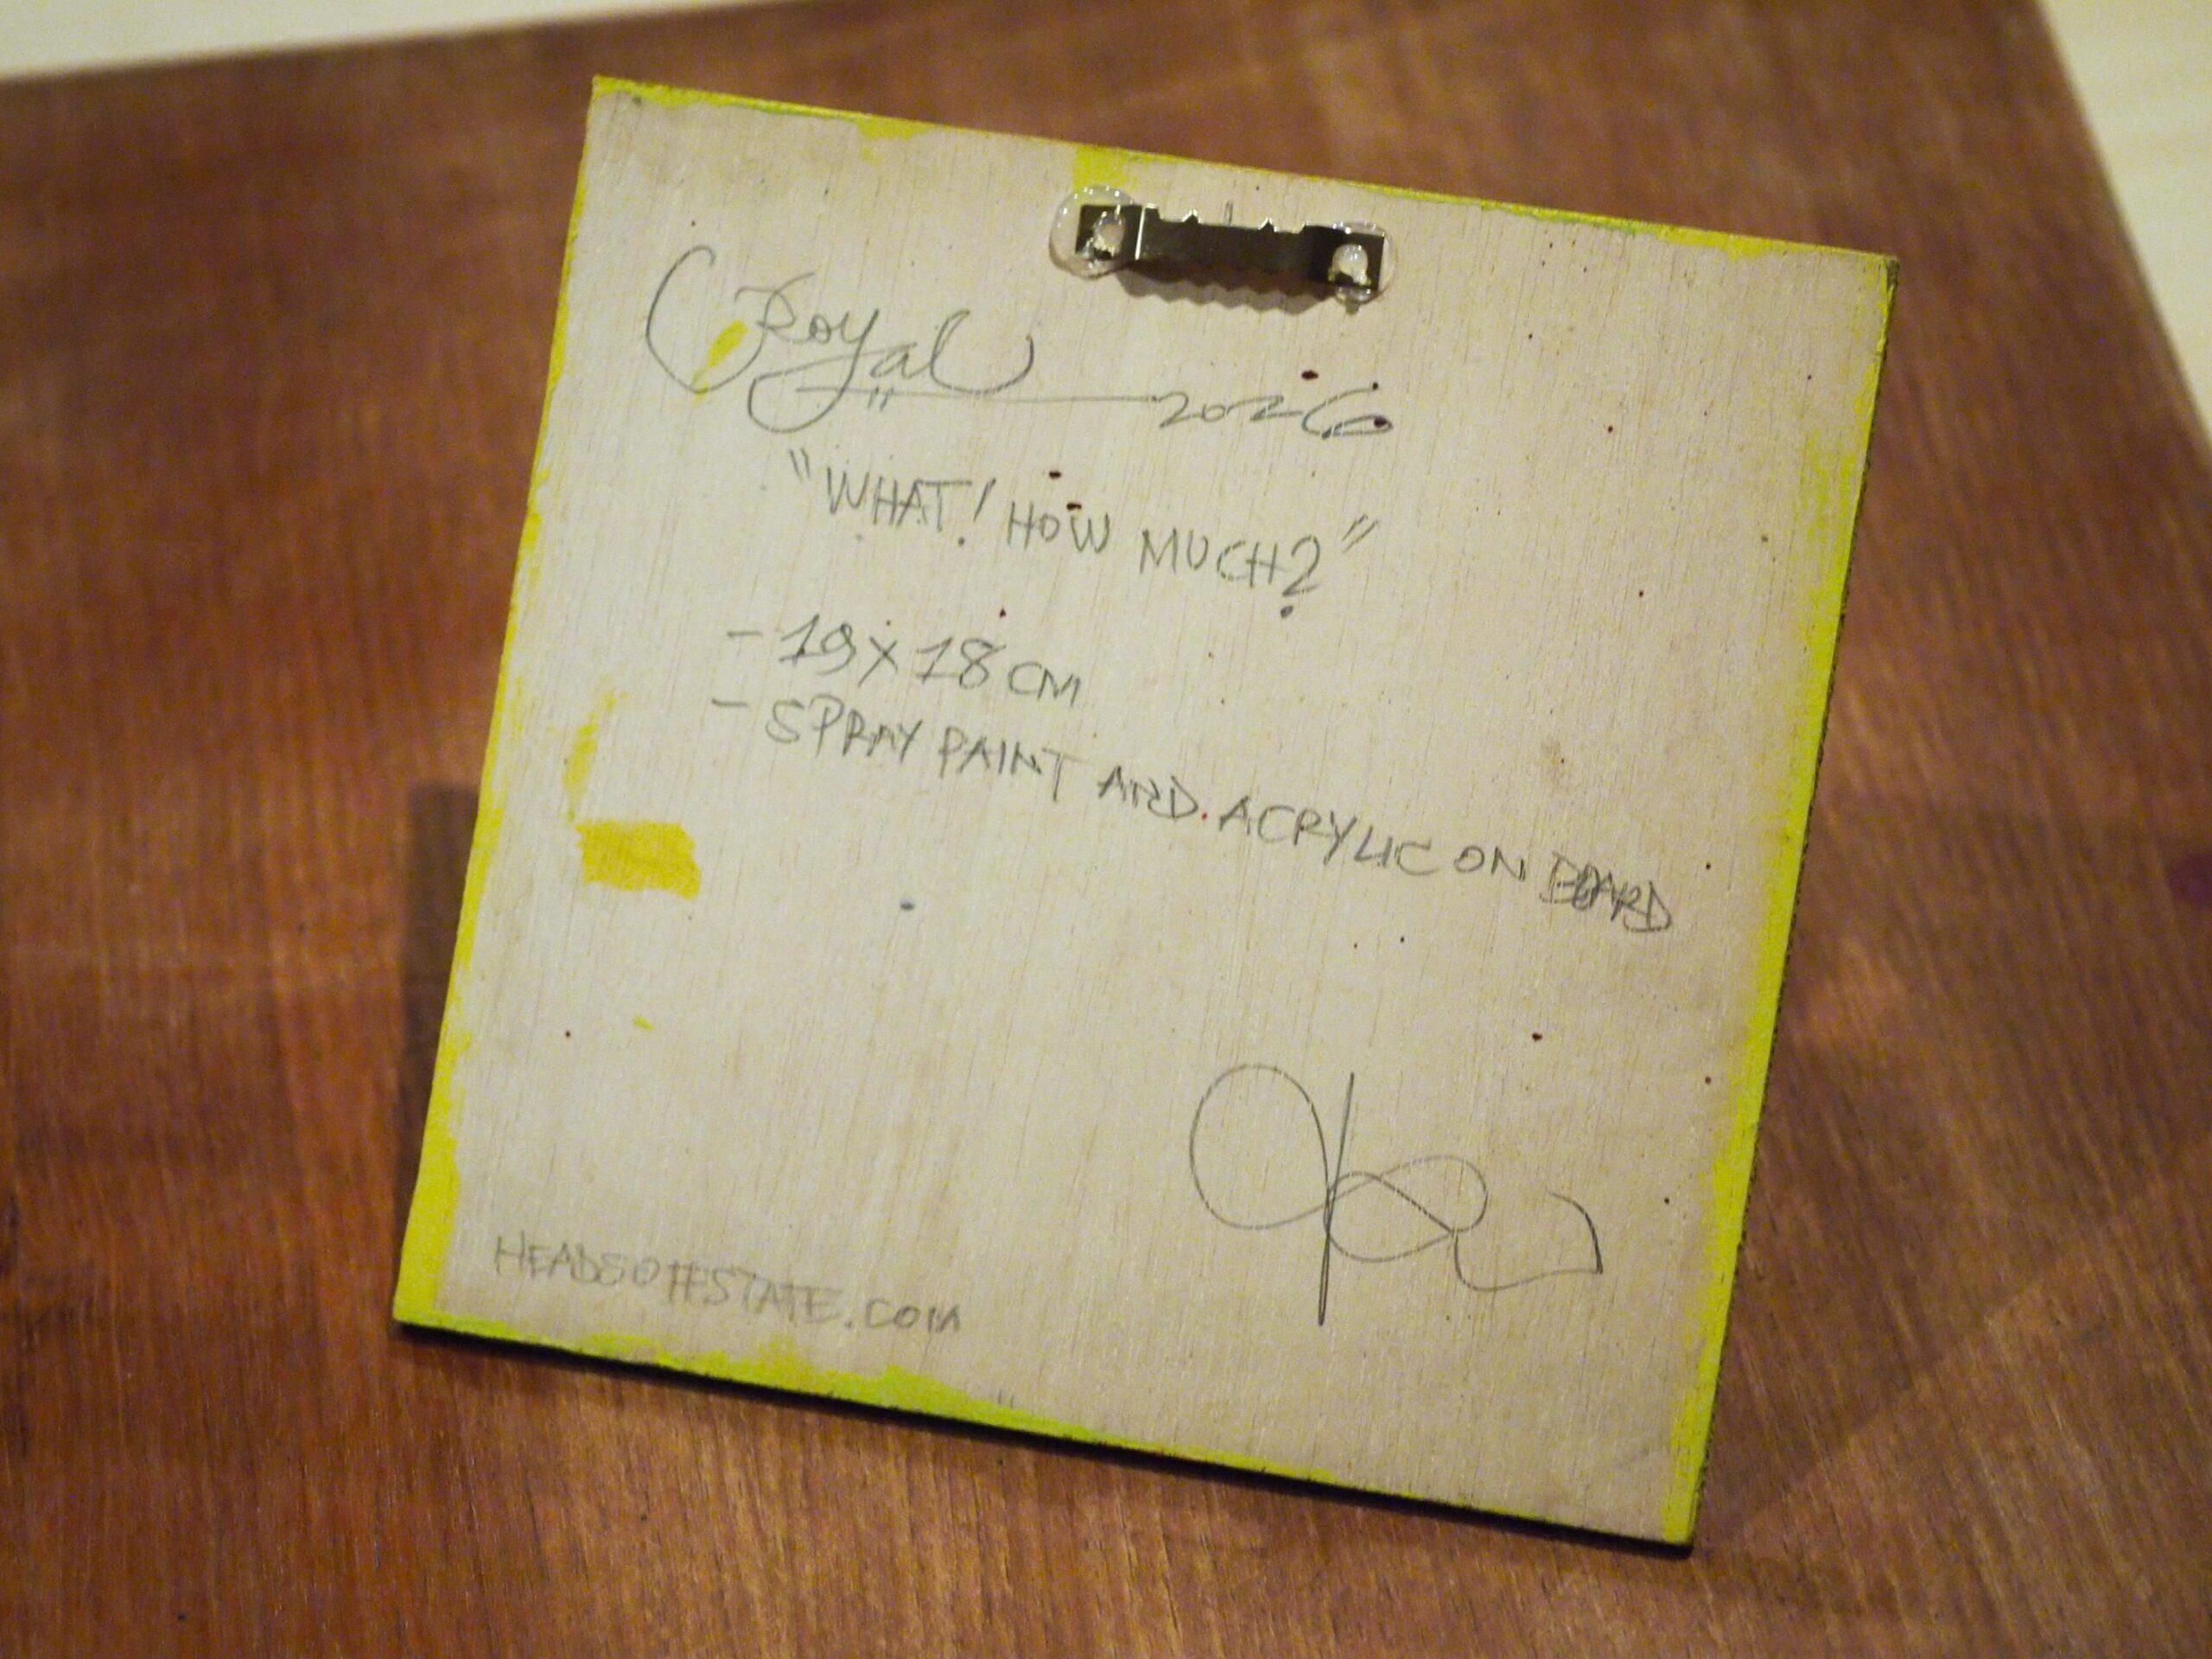 Royal 2026
"WHAT! HOW MUCH?"
- 19 x 18 CM
- SPRAY PAINT AND ACRYLIC ON BOARD
HEADSOFESTATE.COM